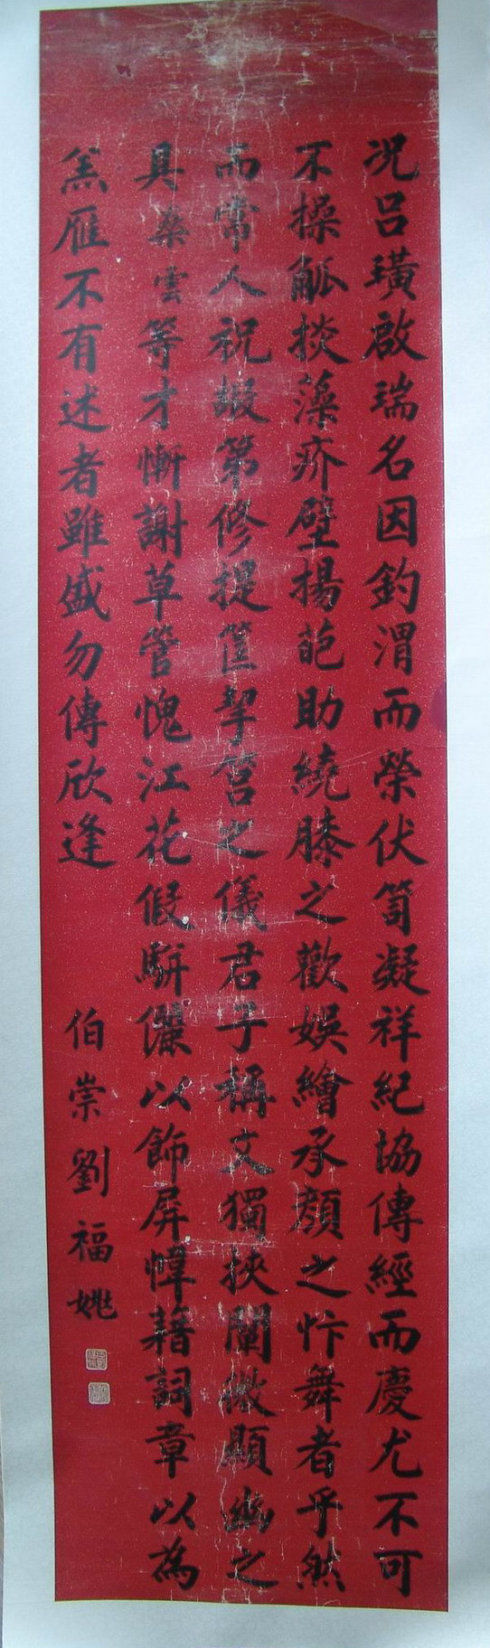 况吕璜啟瑞名因釣渭而榮伏笥凝祥紀協傳經而慶尤不可
不操觚掞藻疥壁揚葩助繞膝之歡娛繪承顏之忭舞者乎然
而常人祝嘏第修提筐挈筥之儀君子稱文獨挾闡微顯幽之
具染雲等才慚謝草管愧江花假駢儷以飾屏幛藉詞章以為
羔雁不有述者雖盛勿傳欣逢
伯崇劉福姚